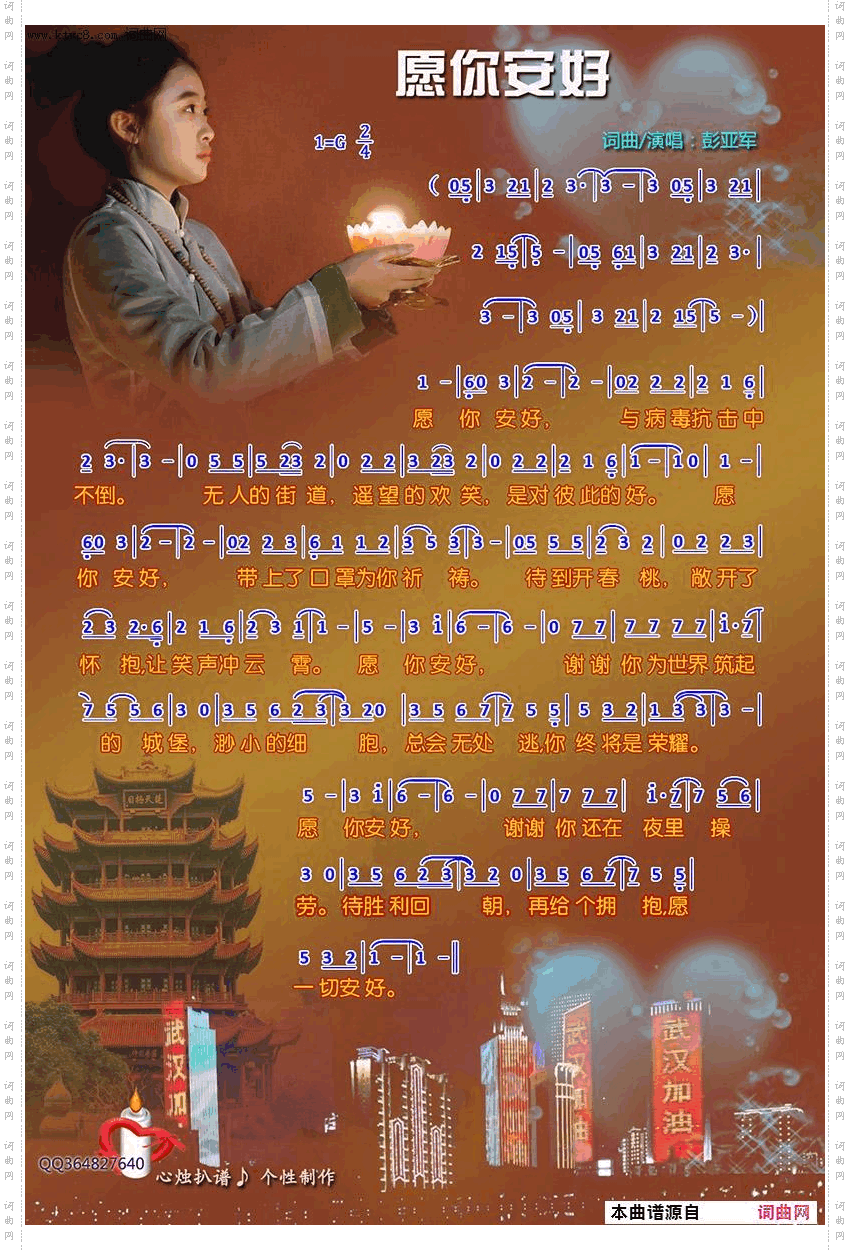 www.ktvc8.com 词曲网
愿你安好
1=G 2/4
词曲/演唱：彭亚军
( 05|3 21|2 3·|3 － 3 05|3 21|
2 15|5 －|05 61|3 21|2 3·|
3 －|3 05|3 21|2 15|5 －)|
1 －|60 3|2 －|2 －|02 2 2|2 1 6|
愿 你 安好， 与病毒抗击中
2 3·|3 －|0 5 5|5 23 2|0 2 2|3 23 2|0 2 2|2 1 6|1 －|10|1 －|
不倒。 无人的街道，遥望的欢笑，是对彼此的好。 愿
60 3|2 －|2 －|02 2 3|6 1 1 2|3 5 3|3－|05 5 5|2 3 2|0 2 2 3|
你 安好， 带上了口罩为你祈 祷。 待到开春 桃， 敞开了
2 3 2·6|2 1 6|2 3 1|1 －|5 －|3 i|6 －|6 －|0 7 7|7 7 7 7|i·7|
怀 抱,让笑声冲云 霄。 愿 你安好， 谢谢你为世界筑起
7 5 5 6|3 0|3 5 6 2 3|3 20|3 5 6 7|7 5 5|5 3 2|1 3 3|3 －|
的 城堡， 渺小的细 胞， 总会无处 逃,你 终将是荣耀。
5 －|3 i|6 －|6 －|0 7 7|7 7 7|i·7|7 5 6|
愿 你安好， 谢谢你还在 夜里 操
3 0|3 5 6 2 3|3 2 0|3 5 6 7|7 5 5|
劳。待胜利回 朝，再给个拥 抱,愿
5 3 2|1 －|1 －‖
一切安好。
武汉加
武汉加油
武汉加油
QQ364827640
心烛扒谱♪ 个性制作
本曲谱源自 词曲网